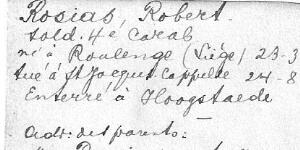 Rosias, Robert.
sold. 4e Carab
né à Roulenge (Liége) 23-3
tué à St Jacques Cappelle 24-8
Enterré à Hoogstaede
adr: des parents: